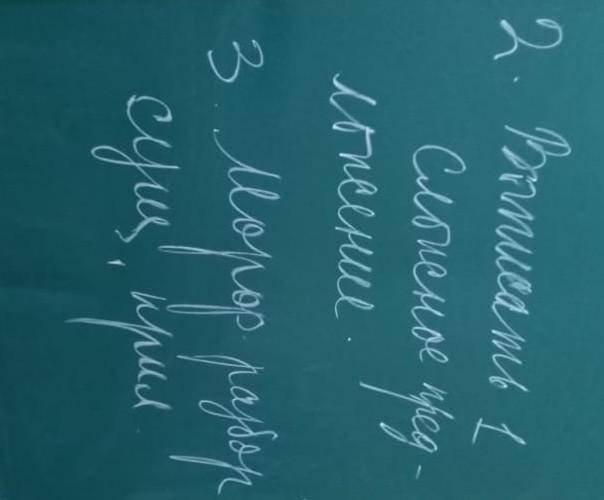 2. Выписать 1
сложное пред-
ложение.
3. Морф. разбор
сущ., прил.